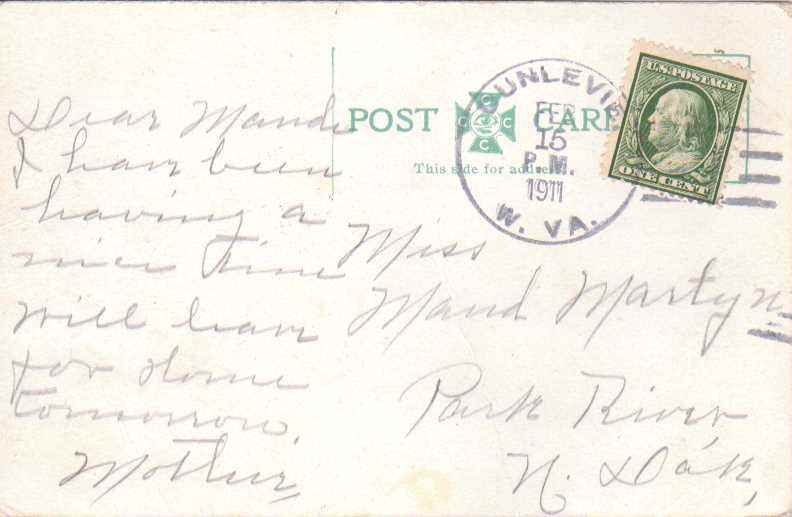 POST CARD
This side for address.
DUNLEVIE
FEB
15
P.M.
1911
W. VA.
U.S. POSTAGE
ONE CENT
C
C C
C
Dear Maude
I have been
having a
nice time
will leave
for Home
tomorrow.
Mother
Miss
Maud Martyn
Park River
N. Dak,